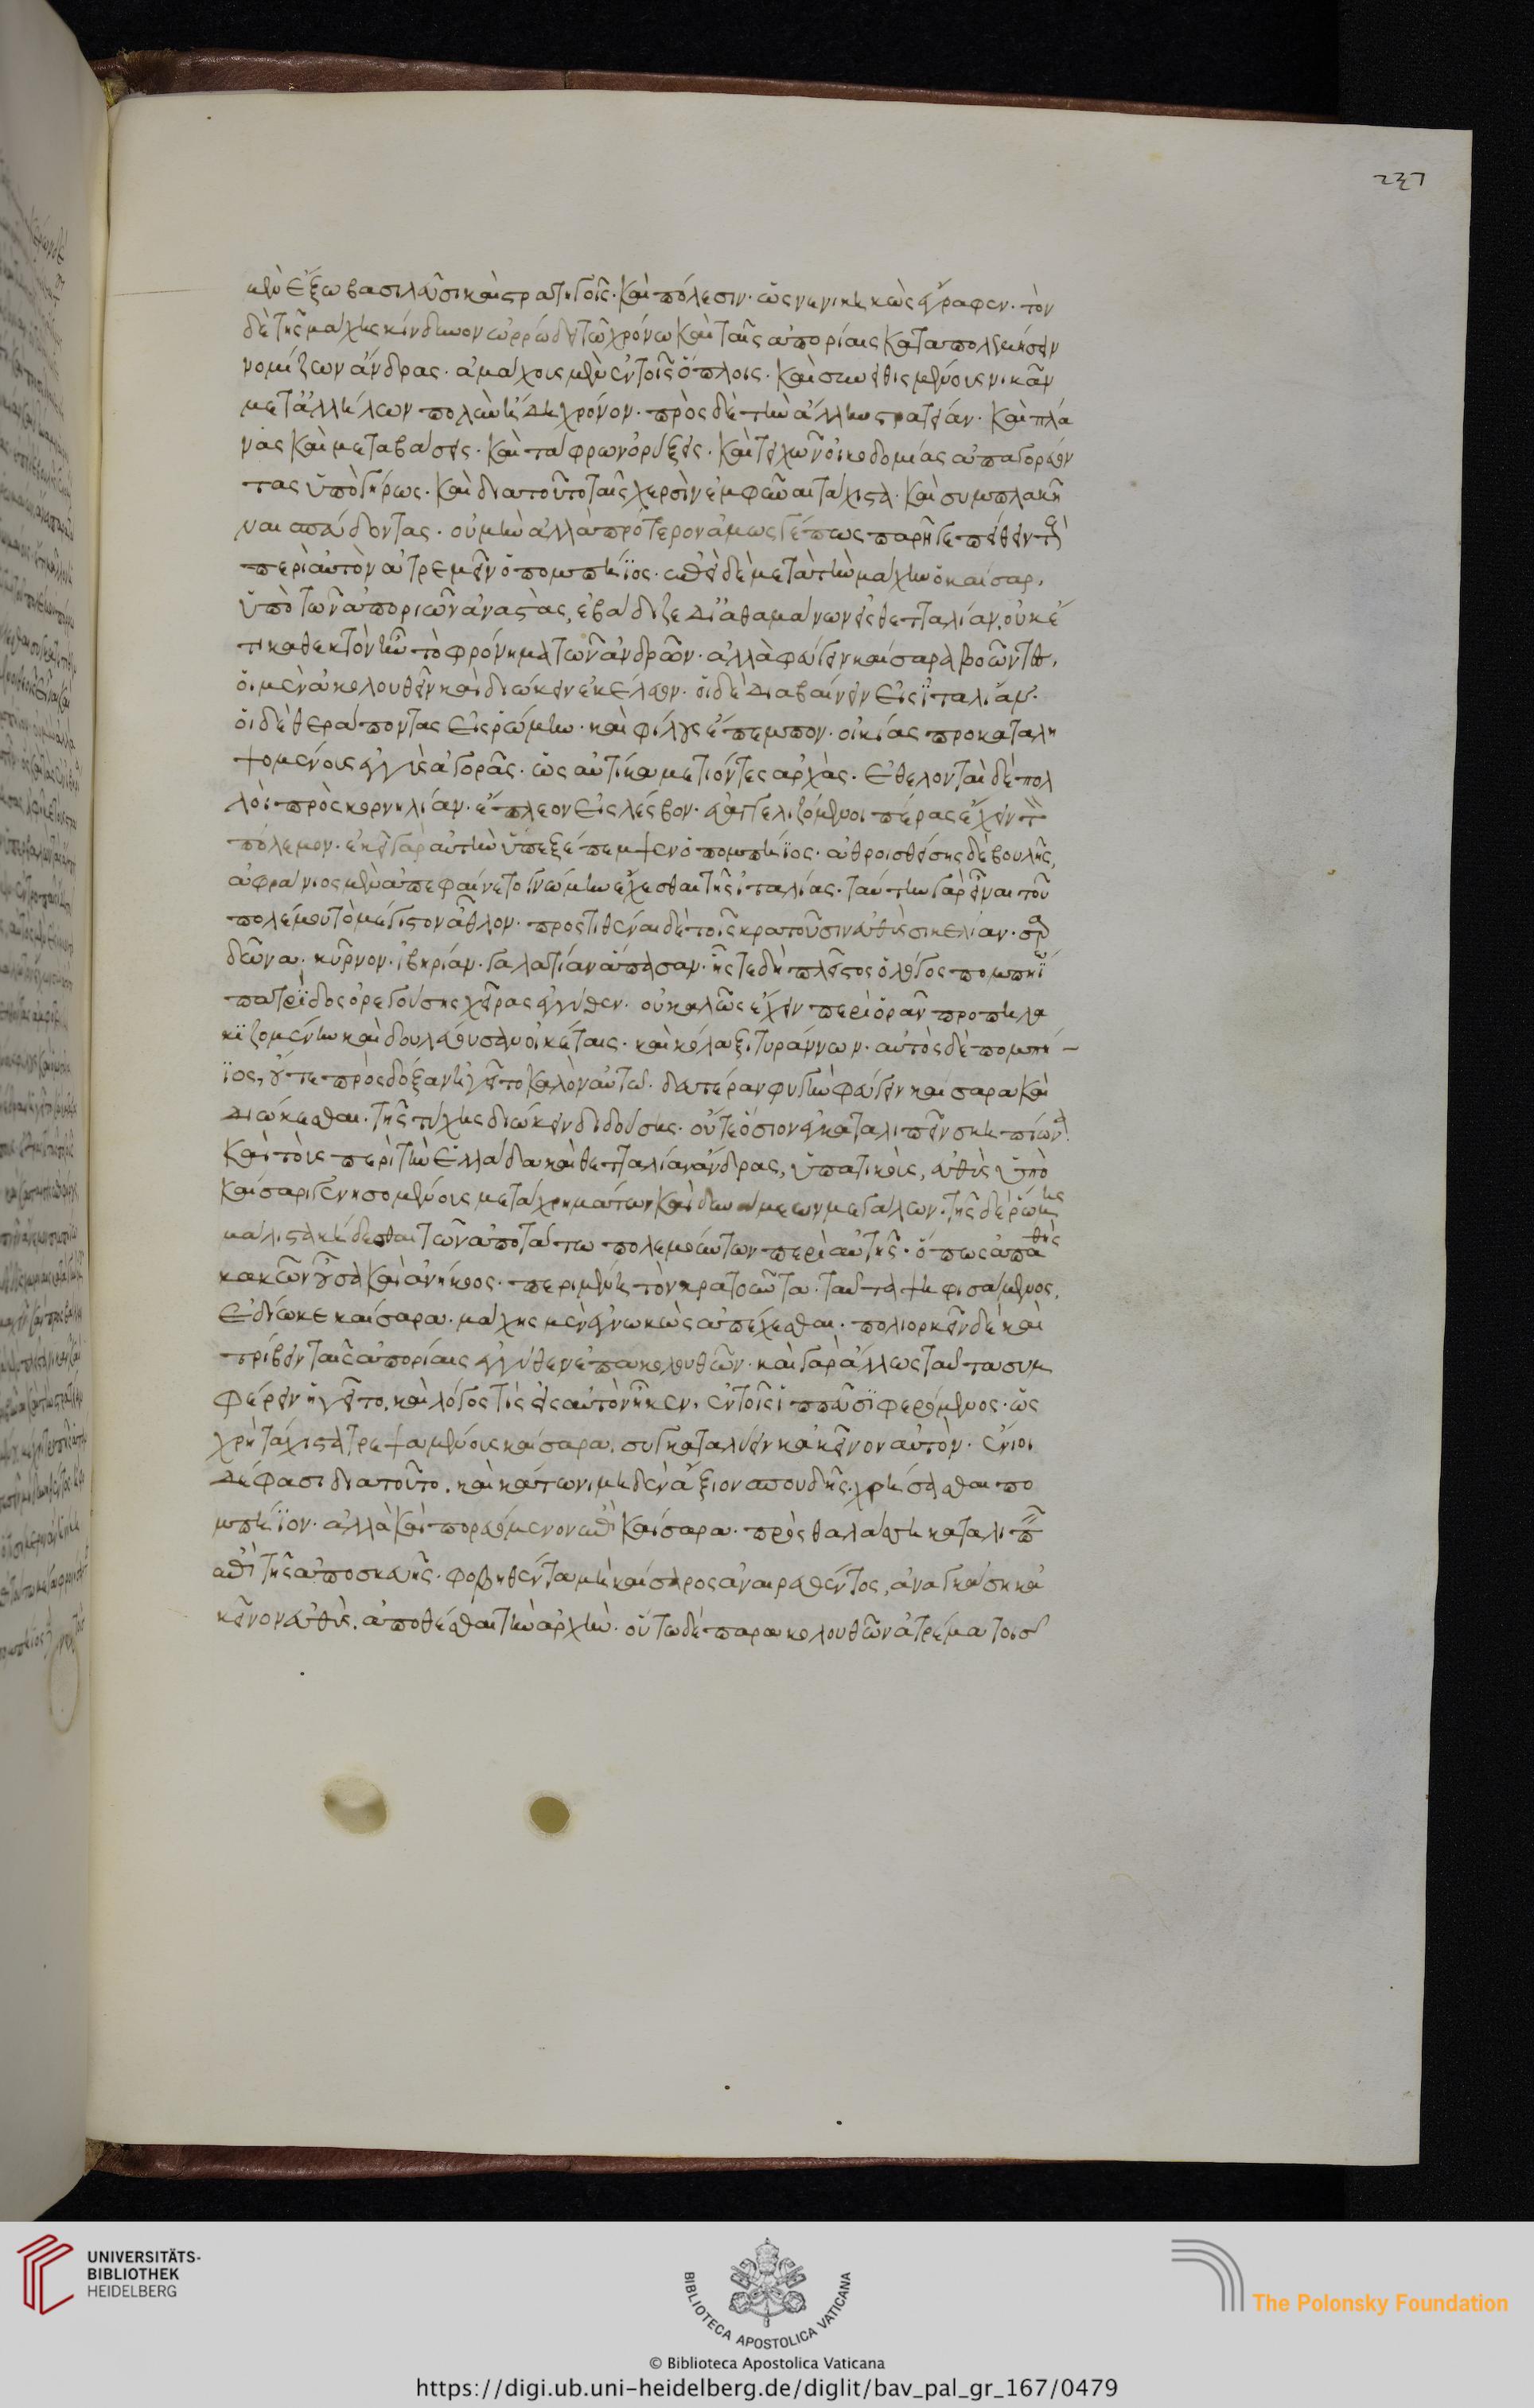 μὲν ἔξω βασιλεῦσι καὶ στρατηγοῖς· καὶ πόλεσιν· ὡς νενικηκὼς ἔγραφεν· τὸν
δὲ τῆς μάχης κίνδυνον ὠρρώδει τῶ χρόνω καὶ ταῖς ἀπορίαις καταπολεμήσειν
νομίζων ἄνδρας· ἀμάχους μὲν ἐν τοῖς ὅπλοις· καὶ συνειθισμένους νικᾶν
μετἀλλήλων πολὺν ἤδη χρόνον· πρὸς δὲ τὴν ἄλλην στρατείαν· καὶ πλά
νας καὶ μεταβάσεις· καὶ τάφρων ὀρύξεις· καὶ τειχῶν οἰκοδομίας ἀπαγορεύον
τας ὑπὸ γήρως· καὶ διατοῦτο ταῖς χερσὶν ἐμφῦναι τάχιστα· καὶ συμπλακῆ
ναι σπεύδοντας· οὐ μὴν ἀλλὰ πρότερον ἁμῶς γέ πως παρῆγε πείθειν τοὺς
περὶ αὐτὸν ἀτρεμεῖν ὁ πομπήϊος· ἐπεὶ δὲ μετὰ τὴν μάχην ὁ καίσαρ,
ὑπὸ τῶν ἀποριῶν ἀναστὰς, ἐβάδιζε δι᾽ ἀθαμάνων εἰς θετταλίαν, οὐκέ
τι καθεκτὸν ἦν τὸ φρόνημα τῶν ἀνδρῶν· ἀλλὰ φεύγειν καίσαρα βοῶντες,
οἱ μὲν ἀκολουθεῖν καὶ διώκειν ἐκέλευον· οἱ δὲ διαβαίνειν εἰς ἰταλίαν·
οἱ δὲ θεράποντας εἰς ῥώμην· καὶ φίλους ἔπεμπον· οἰκίας προκαταλη
ψομένους ἐγγὺς ἀγορᾶς· ὡς αὐτίκα μετιόντες ἀρχὰς· ἐθελονταὶ δὲ πολ
λοὶ πρὸς κορνηλίαν· ἔπλεον εἰς λέσβον· εὐαγγελιζόμενοι πέρας ἔχειν τὸν
πόλεμον· ἐκεῖ γὰρ αὐτὴν ὑπεξέπεμψεν ὁ πομπήϊος· ἀθροισθείσης δὲ βουλῆς,
ἀφράνιος μὲν ἀπεφαίνετο γνώμην ἔχεσθαι τῆς ἰταλίας· ταύτην γὰρ εἶναι τοῦ
πολέμου τὸ μέγιστον ἆθλον· προστιθέναι δὲ τοῖς κρατοῦσιν εὐθὺς σικελίαν· σαρ
δῶνα· κύρνον· ἰβηρίαν· γαλατίαν ἅπασαν· ἧς τε δὴ πλεῖστος ὁ λόγος πομπηΐω
πατρίδος ὀρεγούσης χεῖρας ἐγγύθεν· οὐ καλῶς ἔχειν περιορᾶν προπηλα
κιζομένην καὶ δουλεύουσαν οἰκέταις· καὶ κόλαξι τυράννων· αὐτὸς δὲ πομπή
ϊος, οὔτε πρὸς δόξαν ἡγεῖτο καλὸν αὐτῶ· δευτέραν φυγὴν φεύγειν καίσαρα καὶ
διώκεσθαι· τῆς τύχης διώκειν διδούσης· οὔτε ὅσιον ἐγκαταλιπεῖν σκηπίωνα
καὶ τοὺς περὶ τὴν ἑλλάδα καὶ θετταλίαν ἄνδρας, ὑπατικοὺς, εὐθὺς ὑπὸ
καίσαρι γενησομένους μετὰ χρημάτων καὶ δυνάμεων μεγάλων· τῆς δὲ ῥώμης
μάλιστα κήδεσθαι τῶν ἀποτάτω πολεμούντων περὶ αὐτῆς· ὅπως ἀπαθὴς
κακῶν οὖσα καὶ ἀνήκοος· περιμένη τὸν κρατοῦντα· ταῦτα ψηφισάμενος,
ἐδίωκε καίσαρα· μάχης μὲν ἐγνωκὼς ἀπέχεσθαι· πολιορκεῖν δὲ καὶ
τρίβειν ταῖς ἀπορίαις ἐγγύθεν ἐπακολουθῶν· καὶ γὰρ ἄλλως ταῦτα συμ
φέρειν ἡγεῖτο, καὶ λόγος τὶς εἰς αὐτὸν ἧκεν, ἐν τοῖς ἱππεῦσι φερόμενος· ὡς
χρὴ τάχιστα τρεψαμένους καίσαρα, συγκαταλύειν κἀκεῖνον αὐτὸν· ἔνιοι
δέ φασι διατοῦτο, καὶ κάτωνι μηδὲν ἄξιον σπουδῆς χρήσασθαι πο
μπήϊον· ἀλλὰ καὶ πορευόμενον ἐπὶ καίσαρα· πρὸς θαλάσση καταλιπεῖν
ἐπὶ τῆς ἀποσκευῆς· φοβηθέντα μὴ καίσαρος ἀναιρεθέντος, ἀναγκάση κἀ
κεῖνον εὐθὺς, ἀποθέσθαι τὴν ἀρχὴν· οὕτω δὲ παρακολουθῶν ἀτρέμα τοῖς
237
UNIVERSITÄTS-
BIBLIOTHEK
HEIDELBERG
BIBLIOTECA APOSTOLICA VATICANA
The Polonsky Foundation
© Biblioteca Apostolica Vaticana
https://digi.ub.uni-heidelberg.de/diglit/bav_pal_gr_167/0479